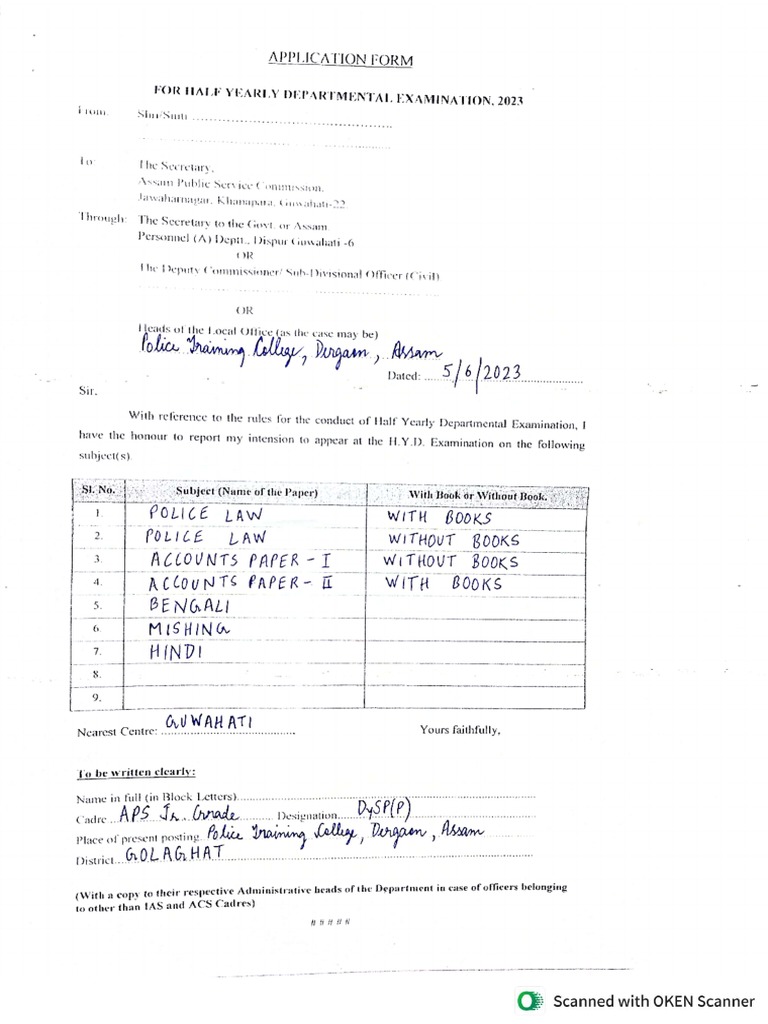 APPLICATION FORM
FOR HALF YEARLY DEPARTMENTAL EXAMINATION, 2023
From: Shri/Smti ................................................
................................................
To: The Secretary,
Assam Public Service Commission,
Jawaharnagar, Khanapara, Guwahati-22
Through: The Secretary to the Govt. or Assam
Personnel (A) Deptt., Dispur Guwahati -6
OR
The Deputy Commissioner/ Sub-Divisional Officer (Civil)
................................................
OR
Heads of the Local Office (as the case may be)
Police Training College, Dergaon, Assam
Dated: 5/6/2023
Sir,
With reference to the rules for the conduct of Half Yearly Departmental Examination, I
have the honour to report my intension to appear at the H.Y.D. Examination on the following
subject(s)
Sl. No. Subject (Name of the Paper) With Book or Without Book.
1. POLICE LAW WITH BOOKS
2. POLICE LAW WITHOUT BOOKS
3. ACCOUNTS PAPER - I WITHOUT BOOKS
4. ACCOUNTS PAPER - II WITH BOOKS
5. BENGALI
6. MISHING
7. HINDI
8.
9.
Nearest Centre: GUWAHATI Yours faithfully,
To be written clearly:
Name in full (in Block Letters)................................................
Cadre APS Jr. Grade Designation DySP(P)
Place of present posting Police Training College, Dergaon, Assam
District GOLAGHAT
(With a copy to their respective Administrative heads of the Department in case of officers belonging
to other than IAS and ACS Cadres)
#####
Scanned with OKEN Scanner